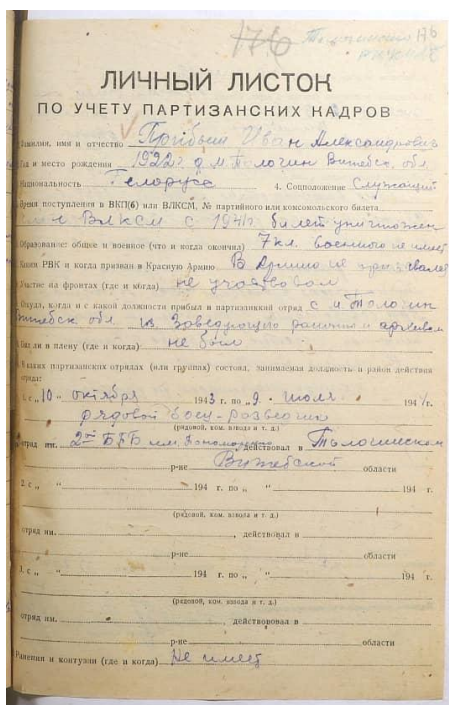 176
176
ЛИЧНЫЙ ЛИСТОК
ПО УЧЕТУ ПАРТИЗАНСКИХ КАДРОВ
Фамилия, имя и отчество Иван Александрович
Год и место рождения 1922 г. д. м. Толочин Витебск. обл.
Национальность Белорусс 4. Соцположение Служащий
Время поступления в ВКП(б) или ВЛКСМ, № партийного или комсомольского билета
ВЛКСМ с 1941 билет уничтожен
Образование: общее и военное (что и когда окончил) 7 кл. военного не имеет
Каким РВК и когда призван в Красную Армию В Армию не
Участие на фронтах (где и когда) не участвовал
Откуда, когда и с какой должности прибыл в партизанский отряд с м Толочин
Витебск обл. из Заведующего архивом
Был ли в плену (где и когда) не был
В каких партизанских отрядах (или группах) состоял, занимаемая должность и район действия
отряда:
1. с „10" октября 1943 г. по „9" июля 194 г.
рядовой боец-разведчик
(рядовой, ком. взвода и т. д.)
отряд им. 2ой действовал в Толочинском
р-не Витебской области
2. с „ " 194 г. по „ " 194 г.
(рядовой, ком. взвода и т. д.)
отряд им. , действовал в
р-не области
3. с „ " 194 г. по „ " 194 г.
(рядовой, ком. взвода и т. д.)
отряд им. , действовал в
р-не области
Ранения и контузии (где и когда) Не имеет